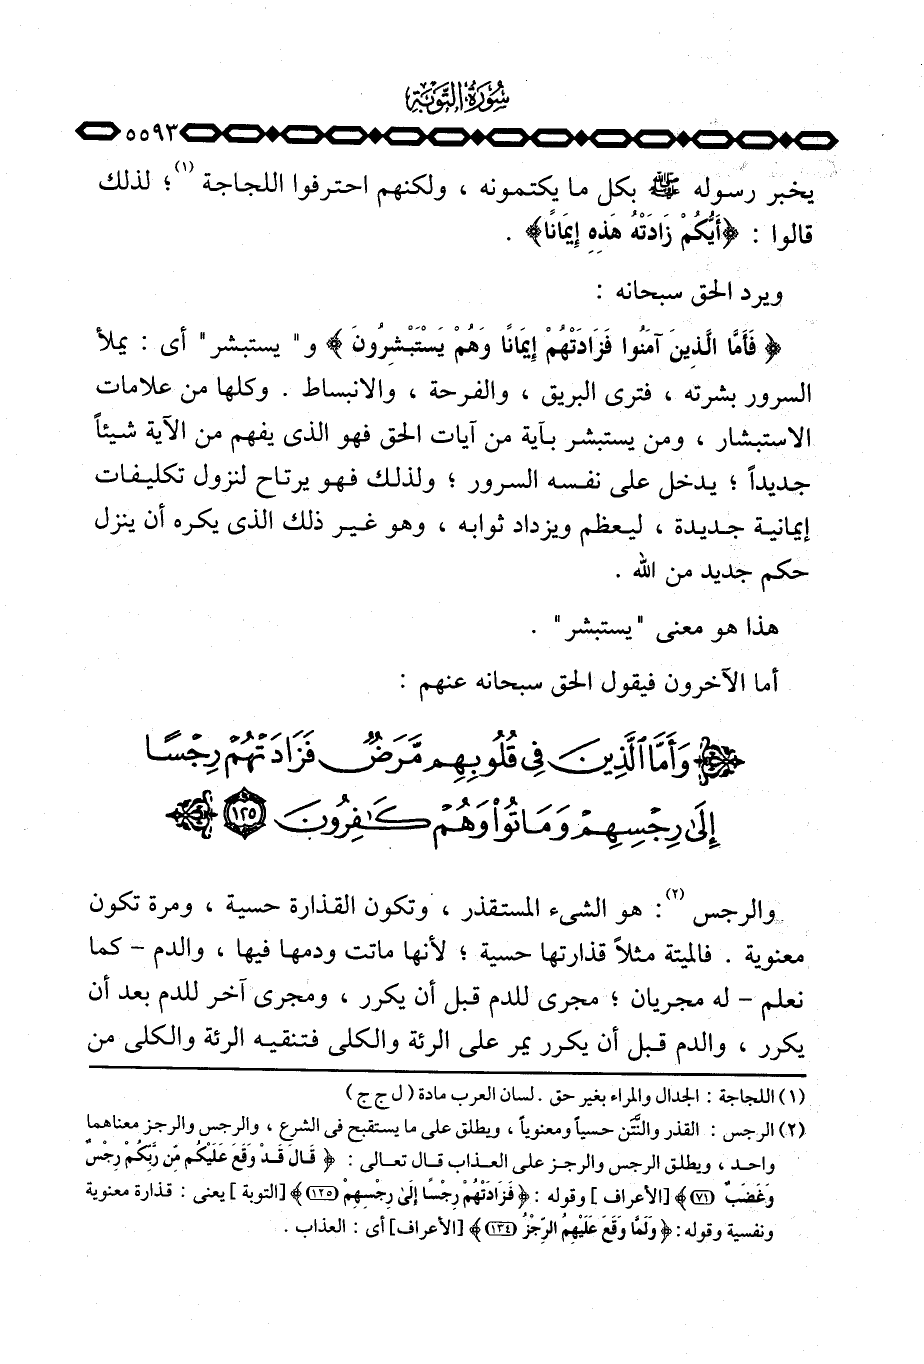 سورة التوبة
٥٥٩٣
يخبر رسوله ﷺ بكل ما يكتمونه ، ولكنهم احترفوا اللجاجة (١) ؛ لذلك
قالوا : ﴿أَيُّكُمْ زَادَتْهُ هَذِهِ إِيمَانًا﴾ .
ويرد الحق سبحانه :
﴿ فَأَمَّا الَّذِينَ آمَنُوا فَزَادَتْهُمْ إِيمَانًا وَهُمْ يَسْتَبْشِرُونَ ﴾ و" يستبشر " أى : يملأ
السرور بشرته ، فترى البريق ، والفرحة ، والانبساط . وكلها من علامات
الاستبشار ، ومن يستبشر بـآية من آيات الحق فهو الذى يفهم من الآية شيئاً
جديداً ؛ يدخل على نفسه السرور ؛ ولذلك فهو يرتاح لنزول تكليفات
إيمانية جديدة ، ليعظم ويزداد ثوابه ، وهو غير ذلك الذى يكره أن ينزل
حكم جديد من الله .
هذا هو معنى " يستبشر " .
أما الآخرون فيقول الحق سبحانه عنهم :
وَأَمَّا ٱلَّذِينَ فِى قُلُوبِهِم مَّرَضٌ فَزَادَتْهُمْ رِجْسًا
إِلَىٰ رِجْسِهِمْ وَمَاتُوا۟ وَهُمْ كَـٰفِرُونَ ١٢٥
والرجس (٢) : هو الشىء المستقذر ، وتكون القذارة حسية ، ومرة تكون
معنوية . فالميتة مثلاً قذارتها حسية ؛ لأنها ماتت ودمها فيها ، والدم – كما
نعلم – له مجريان ؛ مجرى للدم قبل أن يكرر ، ومجرى آخر للدم بعد أن
يكرر ، والدم قبل أن يكرر يمر على الرئة والكلى فتنقيه الرئة والكلى من
(١) اللجاجة : الجدال والمراء بغير حق . لسان العرب مادة ( ل ج ج )
(٢) الرجس : القذر والنَّتَن حسياً ومعنوياً ، ويطلق على ما يستقبح فى الشرع ، والرجس والرجز معناهما
واحد ، ويطلق الرجس والرجز على العذاب قال تعالى : ﴿ قَالَ قَدْ وَقَعَ عَلَيْكُم مِّن رَّبِّكُمْ رِجْسٌ
وَغَضَبٌ (٧١)﴾ [الأعراف ] وقوله : ﴿ فَزَادَتْهُمْ رِجْسًا إِلَىٰ رِجْسِهِمْ (١٢٥)﴾ [التوبة ] يعنى : قذارة معنوية
ونفسية وقوله: ﴿ وَلَمَّا وَقَعَ عَلَيْهِمُ الرِّجْزُ (١٣٤)﴾ [الأعراف] أى : العذاب .